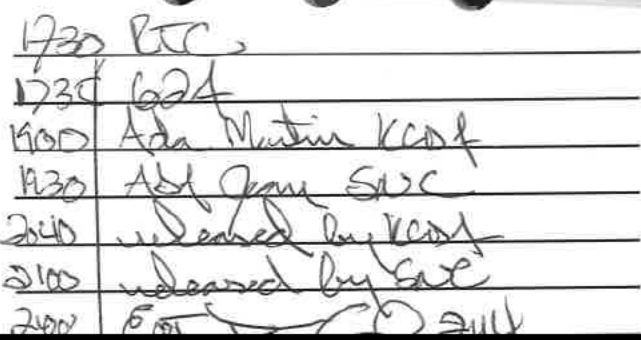 1730 RTC
1735 624
1900 Ada Martin KCDF
1930 Abf Jean SNC
2040 released by KCDF
2100 released by SNC
2400